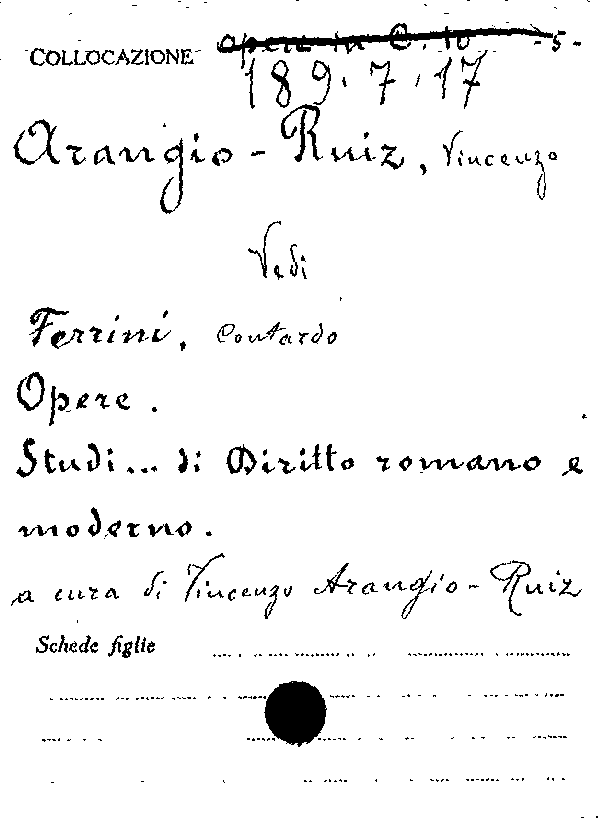 COLLOCAZIONE opera in C. 10 -5-
189.7.17
Arangio-Ruiz, Vincenzo
Vedi
Ferrini, Contardo
Opere.
Studi... di Diritto romano e
moderno.
a cura di Vincenzo Arangio-Ruiz
Schede figlie